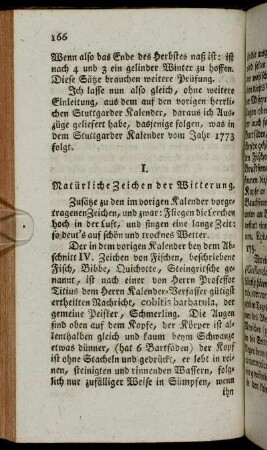 166
Wenn also das Ende des Herbstes naß ist: ist
nach 4 und 3 ein gelinder Winter zu hoffen.
Diese Sätze brauchen weitere Prüfung.
Ich lasse nun also gleich, ohne weitere
Einleitung, aus dem auf den vorigen herrli-
chen Stuttgarder Kalender, daraus ich Aus-
züge geliefert habe, dasjenige folgen, was in
dem Stuttgarder Kalender vom Jahr 1773
folgt.
I.
Natürliche Zeichen der Witterung.
Zusätze zu den im vorigen Kalender vorge-
tragenen Zeichen, und zwar: Fliegen die Lerchen
hoch in der Luft, und singen eine lange Zeit:
so deut's auf schön und trocknes Wetter.
Der in dem vorigen Kalender bey dem Ab-
schnitt IV. Zeichen von Fischen, beschriebene
Fisch, Bibbe, Quichotte, Steingritsche ge-
nannt, ist nach einer von Herrn Professor
Titius dem Herrn Kalender-Verfasser gütigst
ertheilten Nachricht, cobitis barbatula, der
gemeine Peisker, Schmerling. Die Augen
sind oben auf dem Kopfe, der Körper ist al-
lenthalben gleich und kaum beym Schwanze
etwas dünner, (hat 6 Bartfäden) der Kopf
ist ohne Stacheln und gedrückt, er lebt in rei-
nen, steinigten und rinnenden Wassern, folg-
lich nur zufälliger Weise in Sümpfen, wenn
ihn